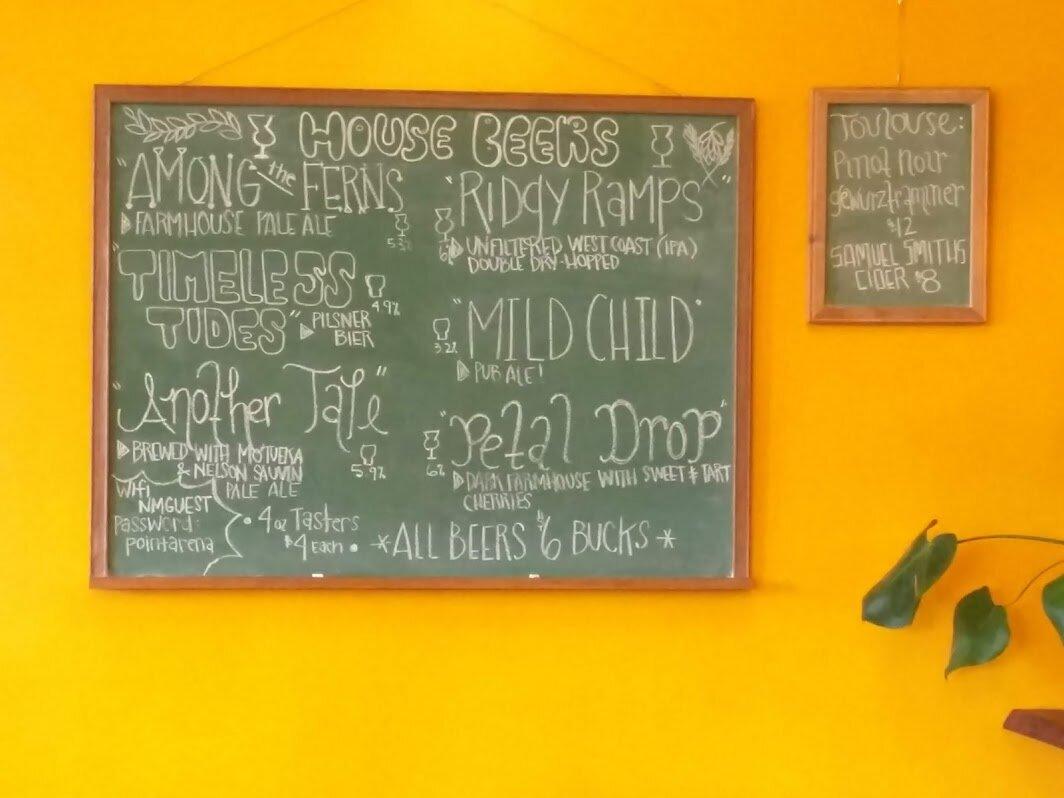 HOUSE BEERS
"AMONG the FERNS
FARMHOUSE PALE ALE
"TIMELESS
4.9%
TIDES"
PILSNER
BIER
"Another Tale"
BREWED WITH MOTUEKA
& NELSON SAUVIN
PALE ALE
5.9%
Wifi
NMGUEST
Password:
pointarena
• 4 oz Tasters
$4 Each •
"RIDGY RAMPS"
UNFILTERED WEST COAST (IPA)
DOUBLE DRY-HOPPED
"MILD CHILD"
3.2%
PUB ALE!
"Petal Drop"
6%
DARK FARMHOUSE WITH SWEET & TART
CHERRIES
*ALL BEERS $6 BUCKS*
Toulouse:
Pinot noir
gewurztraminer
$12
SAMUEL SMITHS
CIDER $8